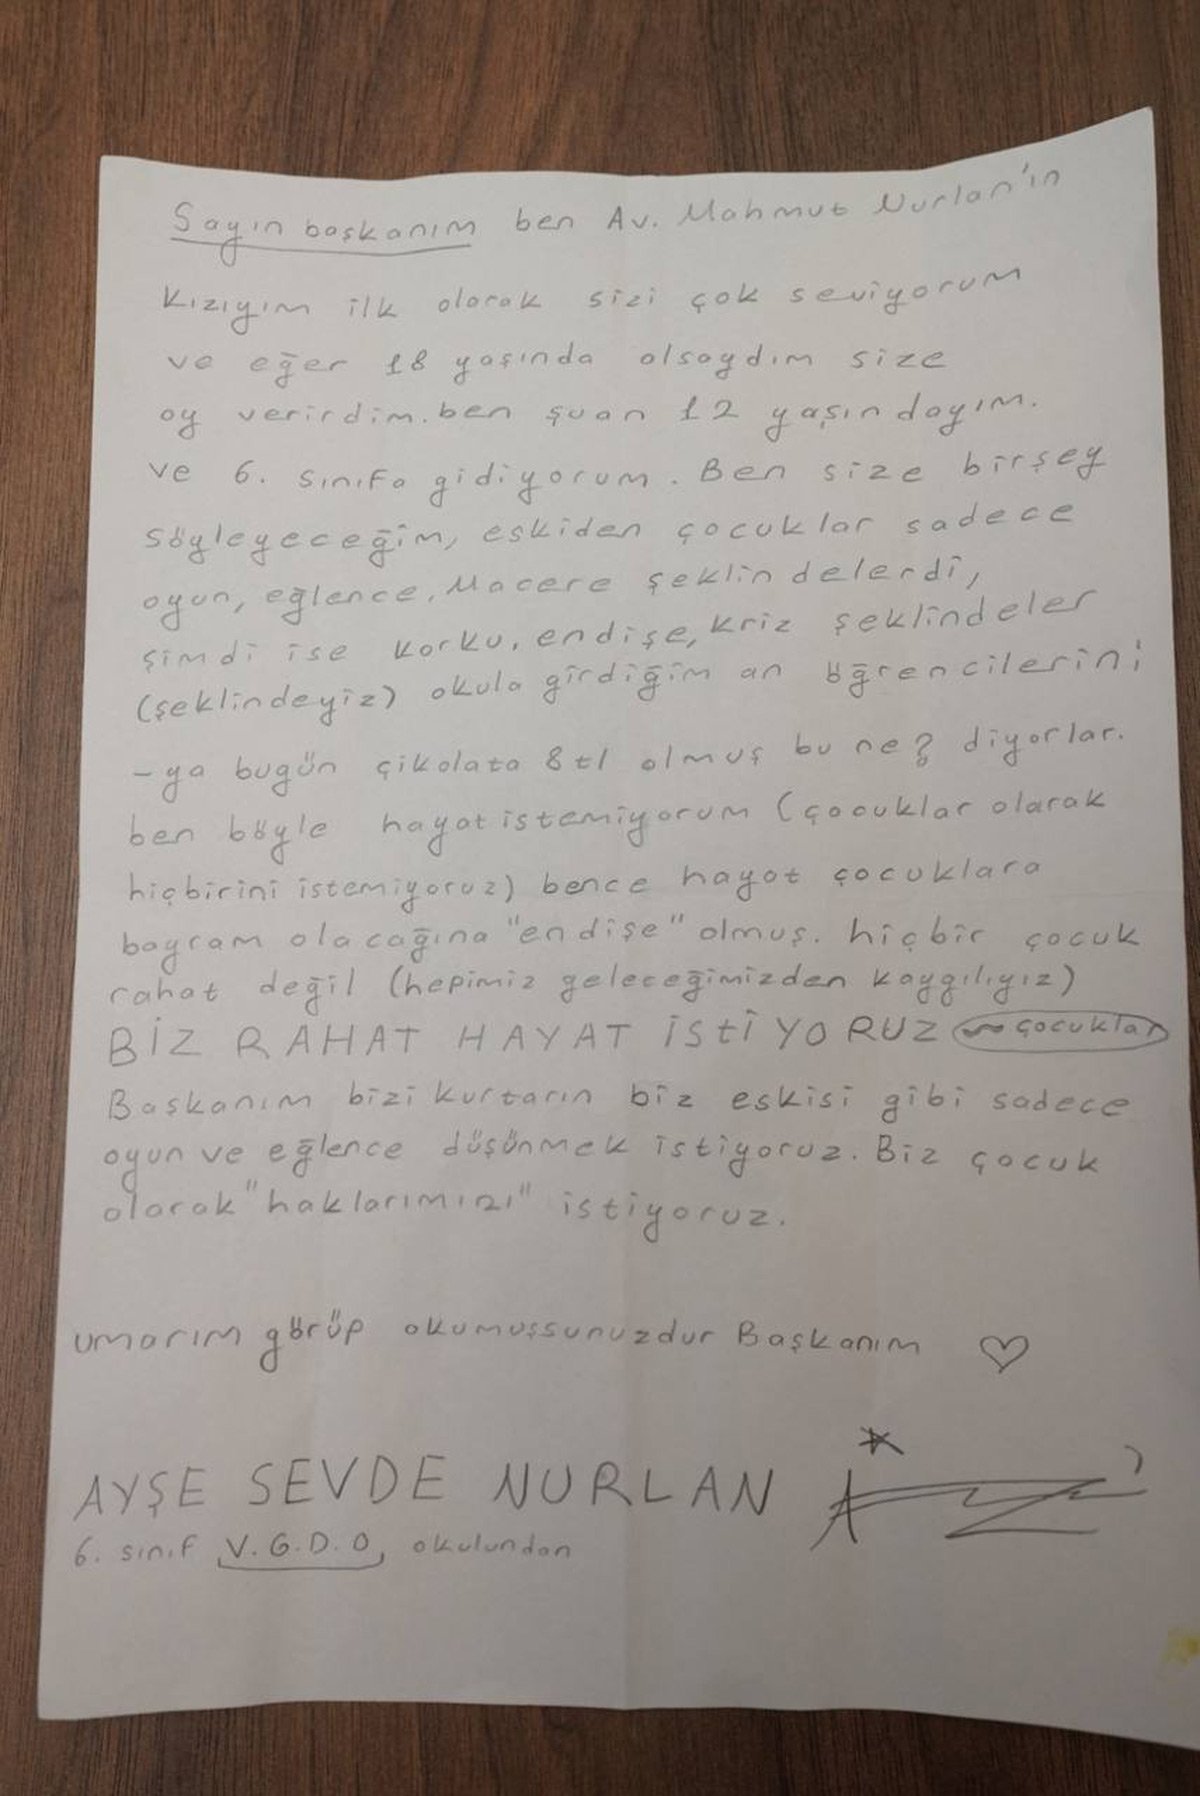 Sayın başkanım ben Av. Mahmut Nurlan'ın
Kızıyım ilk olarak sizi çok seviyorum
ve eğer 18 yaşında olsaydım size
oy verirdim. ben şuan 12 yaşındayım.
ve 6. sınıfa gidiyorum. Ben size birşey
söyleyeceğim, eskiden çocuklar sadece
oyun, eğlence, Macere şeklindelerdi,
şimdi ise korku, endişe, kriz şeklindeler
(şeklindeyiz) okula girdiğim an öğrencilerini
-ya bugün çikolata 8 tl olmuş bu ne? diyorlar.
ben böyle hayat istemiyorum (çocuklar olarak
hiçbirini istemiyoruz) bence hayat çocuklara
bayram olacağına "endişe" olmuş. hiçbir çocuk
rahat değil (hepimiz geleceğimizden kaygılıyız)
BİZ RAHAT HAYAT İSTİYORUZ ~ çocuklar
Başkanım bizi kurtarın biz eskisi gibi sadece
oyun ve eğlence düşünmek istiyoruz. Biz çocuk
olarak "haklarımızı" istiyoruz.
umarım görüp okumuşsunuzdur Başkanım ♡
AYŞE SEVDE NURLAN
6. sınıf V.G.D.O, okulundan